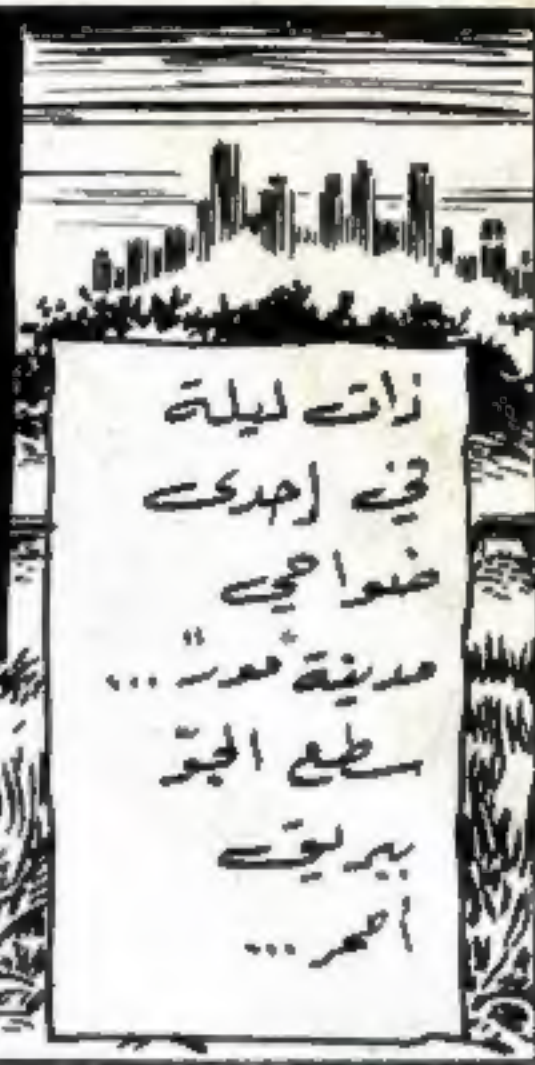 ذات ليلة
في إحدى
ضواحي
مدينة "مور" ...
سطع الجوّ
ببريق
أحمر ...